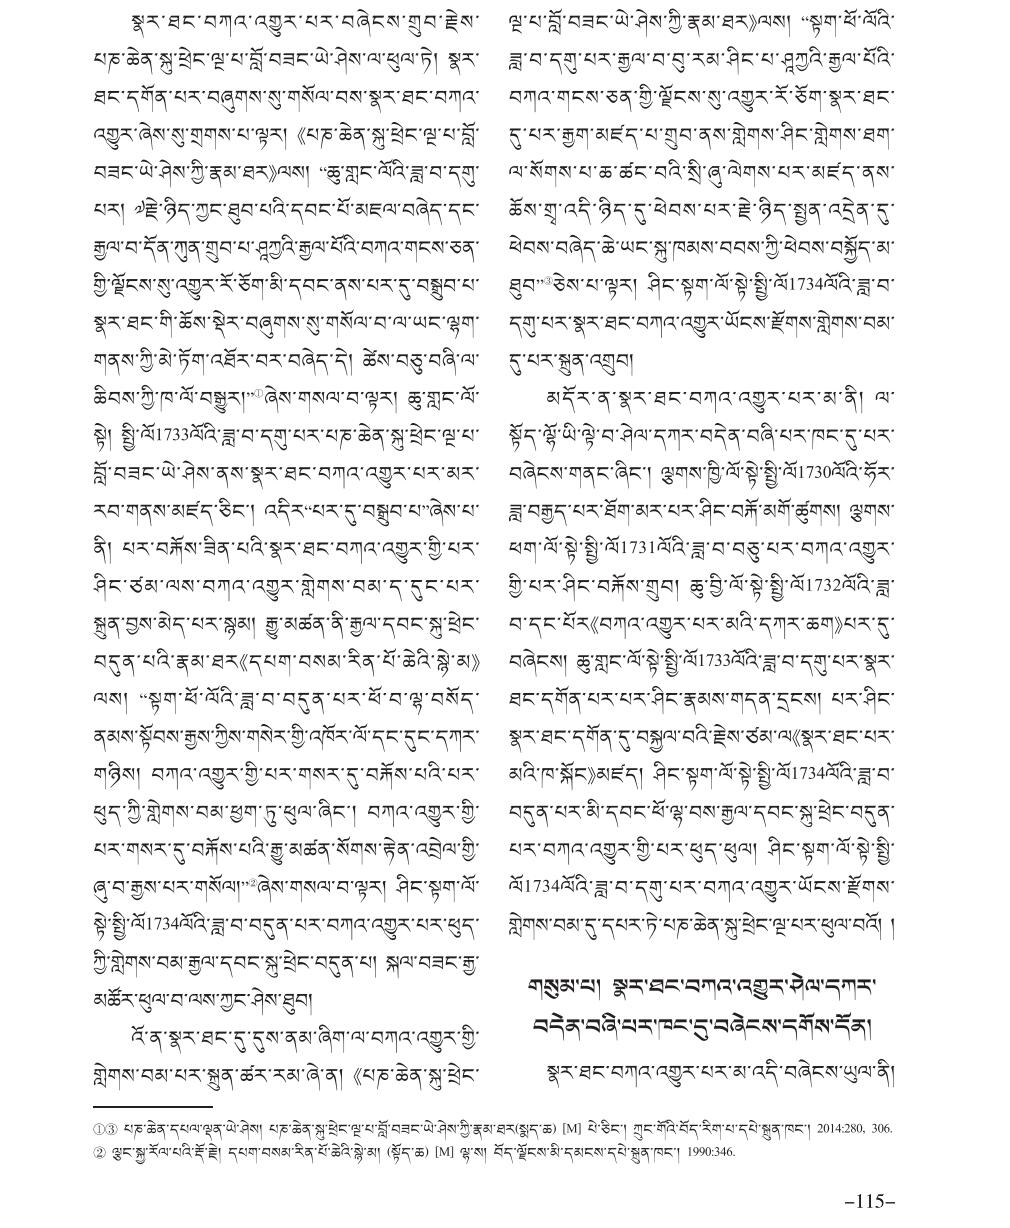 སྣར་ཐང་བཀའ་འགྱུར་པར་བཞེངས་གྲུབ་རྗེས་
པཎ་ཆེན་སྐུ་ཕྲེང་ལྔ་པ་བློ་བཟང་ཡེ་ཤེས་ལ་ཕུལ་ཏེ། སྣར་
ཐང་དགོན་པར་བཞུགས་སུ་གསོལ་བས་སྣར་ཐང་བཀའ་
འགྱུར་ཞེས་སུ་གྲགས་པ་ལྟར། 《པཎ་ཆེན་སྐུ་ཕྲེང་ལྔ་པ་བློ་
བཟང་ཡེ་ཤེས་ཀྱི་རྣམ་ཐར》ལས། “ཆུ་གླང་ལོའི་ཟླ་བ་དགུ་
པར། ༧རྗེ་ཉིད་ཀྱང་ཐུབ་པའི་དབང་པོ་མཇལ་བཞེད་དང་
རྒྱལ་བ་དོན་ཀུན་གྲུབ་པ་ཤཱཀྱའི་རྒྱལ་པོའི་བཀའ་གངས་ཅན་
གྱི་ལྗོངས་སུ་འགྱུར་རོ་ཅོག་མི་དབང་ནས་པར་དུ་བསྒྲུབ་པ་
སྣར་ཐང་གི་ཆོས་སྡེར་བཞུགས་སུ་གསོལ་བ་ལ་ཡང་ལྷག་
གནས་ཀྱི་མེ་ཏོག་འཐོར་བར་བཞེད་དེ། ཚེས་བཅུ་བཞི་ལ་
ཆིབས་ཀྱི་ཁ་ལོ་བསྒྱུར།”①ཞེས་གསལ་བ་ལྟར། ཆུ་གླང་ལོ་
སྟེ། སྤྱི་ལོ1733ལོའི་ཟླ་བ་དགུ་པར་པཎ་ཆེན་སྐུ་ཕྲེང་ལྔ་པ་
བློ་བཟང་ཡེ་ཤེས་ནས་སྣར་ཐང་བཀའ་འགྱུར་པར་མར་
རབ་གནས་མཛད་ཅིང་། འདིར“པར་དུ་བསྒྲུབ་པ”ཞེས་པ་
ནི། པར་བརྐོས་ཟིན་པའི་སྣར་ཐང་བཀའ་འགྱུར་གྱི་པར་
ཤིང་ཙམ་ལས་བཀའ་འགྱུར་གླེགས་བམ་ད་དུང་པར་
སྐྲུན་བྱས་མེད་པར་སྙམ། རྒྱུ་མཚན་ནི་རྒྱལ་དབང་སྐུ་ཕྲེང་
བདུན་པའི་རྣམ་ཐར《དཔག་བསམ་རིན་པོ་ཆེའི་སྙེ་མ》
ལས། “སྟག་ཕོ་ལོའི་ཟླ་བ་བདུན་པར་ཕོ་བ་ལྷ་བསོད་
ནམས་སྟོབས་རྒྱས་ཀྱིས་གསེར་གྱི་འཁོར་ལོ་དང་དུང་དཀར་
གཉིས། བཀའ་འགྱུར་གྱི་པར་གསར་དུ་བརྐོས་པའི་པར་
ཕུད་ཀྱི་གླེགས་བམ་ཕྱག་ཏུ་ཕུལ་ཞིང་། བཀའ་འགྱུར་གྱི་
པར་གསར་དུ་བརྐོས་པའི་རྒྱུ་མཚན་སོགས་རྟེན་འབྲེལ་གྱི་
ཞུ་བ་རྒྱས་པར་གསོལ།”②ཞེས་གསལ་བ་ལྟར། ཤིང་སྟག་ལོ་
སྟེ་སྤྱི་ལོ1734ལོའི་ཟླ་བ་བདུན་པར་བཀའ་འགྱུར་པར་ཕུད་
ཀྱི་གླེགས་བམ་རྒྱལ་དབང་སྐུ་ཕྲེང་བདུན་པ། སྐལ་བཟང་རྒྱ་
མཚོར་ཕུལ་བ་ལས་ཀྱང་ཤེས་ཐུབ།
འོ་ན་སྣར་ཐང་དུ་དུས་ནམ་ཞིག་ལ་བཀའ་འགྱུར་གྱི་
གླེགས་བམ་པར་སྐྲུན་ཚར་རམ་ཞེ་ན། 《པཎ་ཆེན་སྐུ་ཕྲེང་
ལྔ་པ་བློ་བཟང་ཡེ་ཤེས་ཀྱི་རྣམ་ཐར》ལས། “སྟག་ཕོ་ལོའི་
ཟླ་བ་དགུ་པར་རྒྱལ་བ་བུ་རམ་ཤིང་པ་ཤཱཀྱའི་རྒྱལ་པོའི་
བཀའ་གངས་ཅན་གྱི་ལྗོངས་སུ་འགྱུར་རོ་ཅོག་སྣར་ཐང་
དུ་པར་རྒྱག་མཛད་པ་གྲུབ་ནས་གླེགས་ཤིང་གླེགས་ཐག་
ལ་སོགས་པ་ཆ་ཚང་བའི་སྲི་ཞུ་ལེགས་པར་མཛད་ནས་
ཆོས་གྲྭ་འདི་ཉིད་དུ་ཕེབས་པར་རྗེ་ཉིད་སྤྱན་འདྲེན་དུ་
ཕེབས་བཞེད་ཆེ་ཡང་སྐུ་ཁམས་བབས་ཀྱི་ཕེབས་བསྐྱོད་མ་
ཐུབ”③ཅེས་པ་ལྟར། ཤིང་སྟག་ལོ་སྟེ་སྤྱི་ལོ1734ལོའི་ཟླ་བ་
དགུ་པར་སྣར་ཐང་བཀའ་འགྱུར་ཡོངས་རྫོགས་གླེགས་བམ་
དུ་པར་སྐྲུན་འགྲུབ།
མདོར་ན་སྣར་ཐང་བཀའ་འགྱུར་པར་མ་ནི། ལ་
སྟོད་ལྷོ་ཡི་ལྟེ་བ་ཤེལ་དཀར་བདེན་བཞི་པར་ཁང་དུ་པར་
བཞེངས་གནང་ཞིང་། ལྕགས་ཁྱི་ལོ་སྟེ་སྤྱི་ལོ1730ལོའི་ཧོར་
ཟླ་བརྒྱད་པར་ཐོག་མར་པར་ཤིང་བརྐོ་མགོ་ཚུགས། ལྕགས་
ཕག་ལོ་སྟེ་སྤྱི་ལོ1731ལོའི་ཟླ་བ་བཅུ་པར་བཀའ་འགྱུར་
གྱི་པར་ཤིང་བརྐོས་གྲུབ། ཆུ་བྱི་ལོ་སྟེ་སྤྱི་ལོ1732ལོའི་ཟླ་
བ་དང་པོར《བཀའ་འགྱུར་པར་མའི་དཀར་ཆག》པར་དུ་
བཞེངས། ཆུ་གླང་ལོ་སྟེ་སྤྱི་ལོ1733ལོའི་ཟླ་བ་དགུ་པར་སྣར་
ཐང་དགོན་པར་པར་ཤིང་རྣམས་གདན་དྲངས། པར་ཤིང་
སྣར་ཐང་དགོན་དུ་བསྐྱལ་བའི་རྗེས་ཙམ་ལ《སྣར་ཐང་པར་
མའི་ཁ་སྐོང》མཛད། ཤིང་སྟག་ལོ་སྟེ་སྤྱི་ལོ1734ལོའི་ཟླ་བ་
བདུན་པར་མི་དབང་ཕོ་ལྷ་བས་རྒྱལ་དབང་སྐུ་ཕྲེང་བདུན་
པར་བཀའ་འགྱུར་གྱི་པར་ཕུད་ཕུལ། ཤིང་སྟག་ལོ་སྟེ་སྤྱི་
ལོ1734ལོའི་ཟླ་བ་དགུ་པར་བཀའ་འགྱུར་ཡོངས་རྫོགས་
གླེགས་བམ་དུ་དཔར་ཏེ་པཎ་ཆེན་སྐུ་ཕྲེང་ལྔ་པར་ཕུལ་བའོ། །
གསུམ་པ། སྣར་ཐང་བཀའ་འགྱུར་ཤེལ་དཀར་
བདེན་བཞི་པར་ཁང་དུ་བཞེངས་དགོས་དོན།
སྣར་ཐང་བཀའ་འགྱུར་པར་མ་འདི་བཞེངས་ཡུལ་ནི།
①③ པཎ་ཆེན་དཔལ་ལྡན་ཡེ་ཤེས། པཎ་ཆེན་སྐུ་ཕྲེང་ལྔ་པ་བློ་བཟང་ཡེ་ཤེས་ཀྱི་རྣམ་ཐར(སྨད་ཆ) [M] པེ་ཅིང་། ཀྲུང་གོའི་བོད་རིག་པ་དཔེ་སྐྲུན་ཁང་། 2014:280, 306.
② ལྕང་སྐྱ་རོལ་པའི་རྡོ་རྗེ། དཔག་བསམ་རིན་པོ་ཆེའི་སྙེ་མ། (སྟོད་ཆ) [M] ལྷ་ས། བོད་ལྗོངས་མི་དམངས་དཔེ་སྐྲུན་ཁང་། 1990:346.
–115–